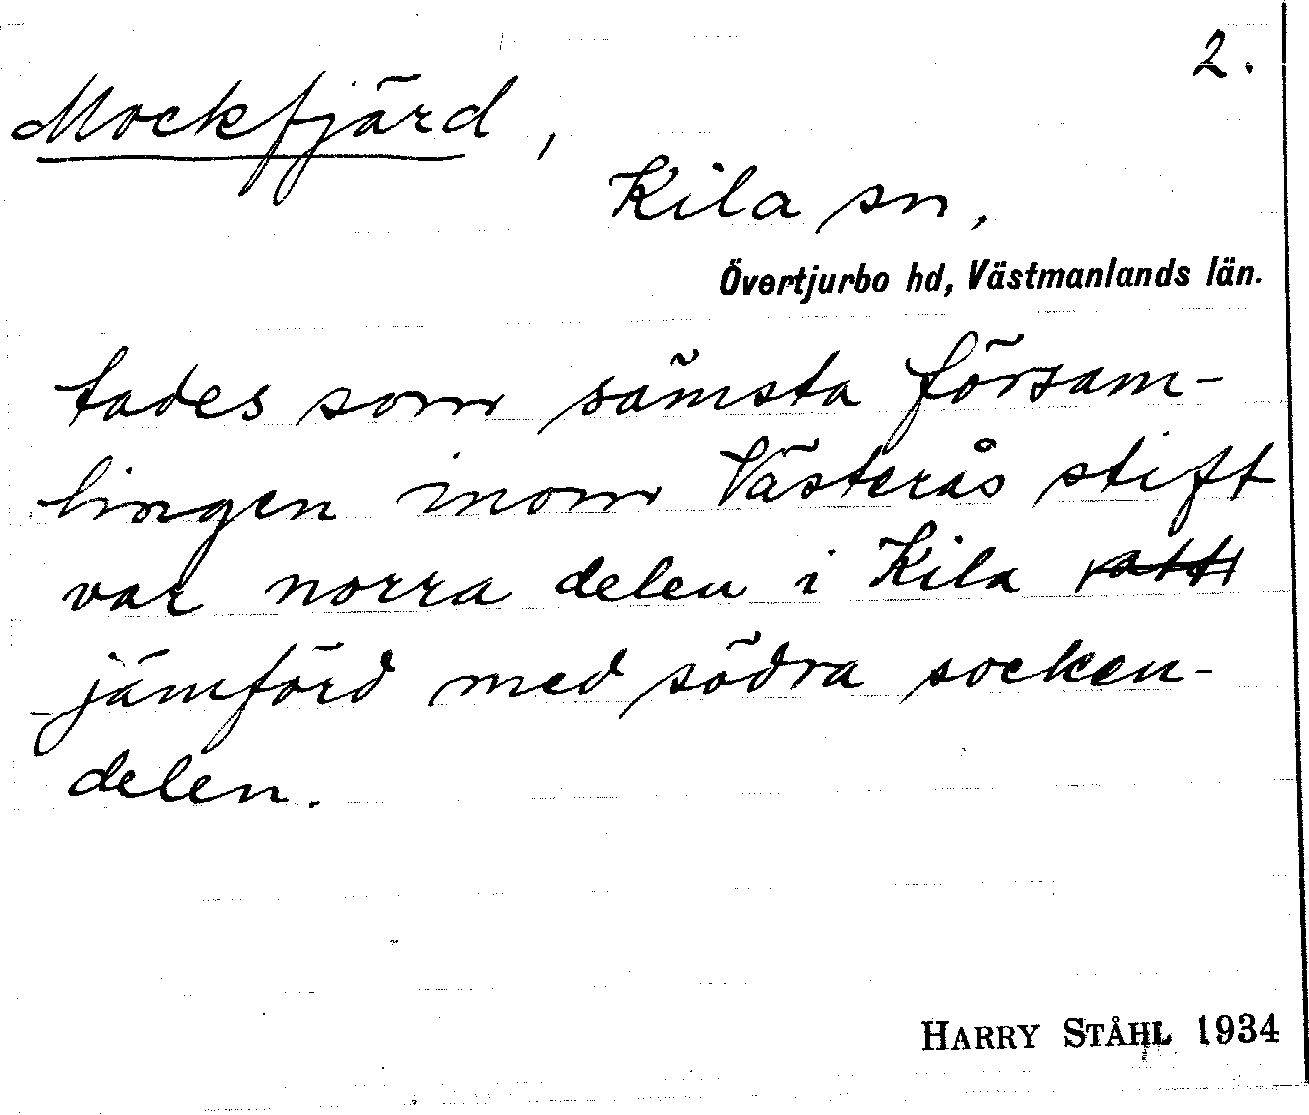 2.
Mockfjärd,
Kila sn,
Övertjurbo hd, Västmanlands län.
tades som sämsta försam-
lingen inom Västerås stift
var norra delen i Kila att
jämförd med södra socken-
delen.
HARRY STÅHL 1934